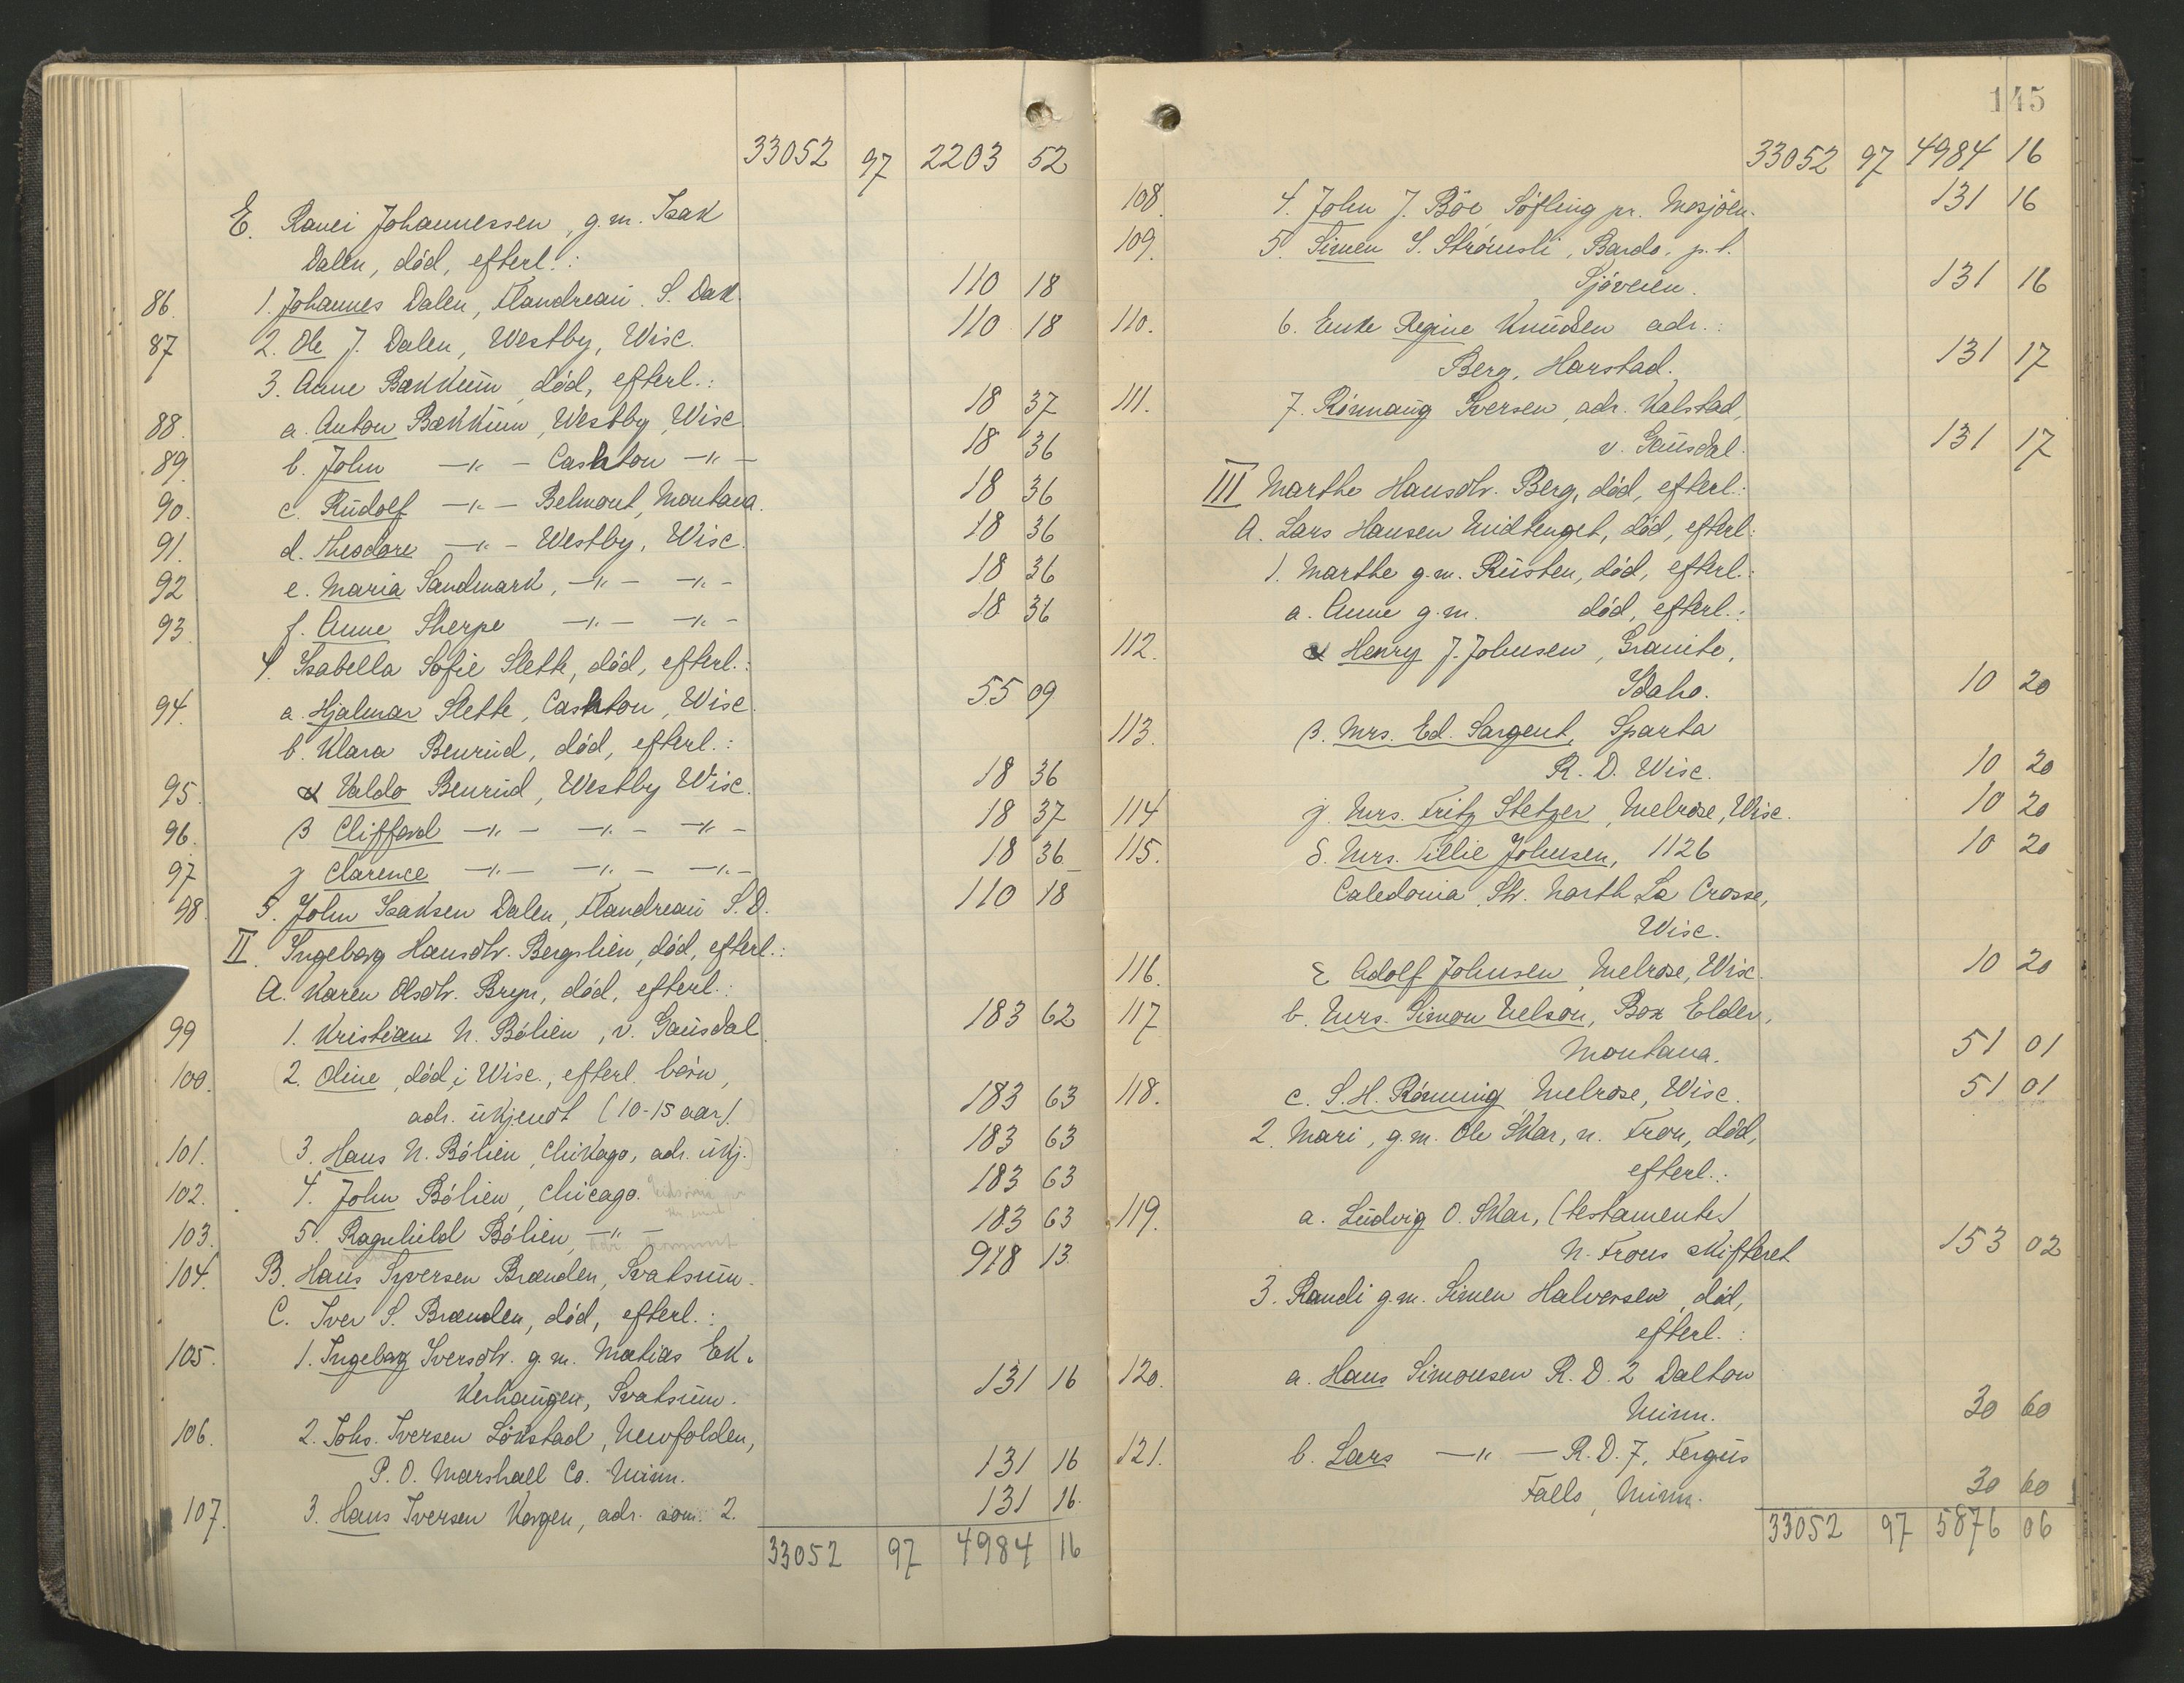 33052 97 2203 52
E. Ranei Johannessen, g.m. Isak
Dalen, död, efterl.:
86. 1. Johannes Dalen, Flandreau. S. Dak. 110 18
87 2. Ole J. Dalen, Westby, Wisc. 110 18
3. Anne Bækkum, död, efterl.:
88. a. Anton Bækkum, Westby, Wisc. 18 37
89. b. John —"— Cashton —"— 18 36
90. c. Rudolf —"— Belmont, Montana. 18 36
91. d. Theodore —"— Westby, Wisc. 18 36
92 e. Maria Sandmark, —"— —"— 18 36
93. f. Anne Sherpe —"— —"— 18 36
4. Isabella Sofie Slette, död, efterl.:
94. a. Hjalmar Slette, Cashton, Wisc. 55 09
b. Klara Benrud, död, efterl.:
95. α Valdo Benrud, Westby Wisc. 18 36
96. β Clifford —"— —"— —"— 18 37
97 γ Clarence —"— —"— —"— 18 36
98. 5. John Isaksen Dalen, Flandreau S.D. 110 18
II. Ingeborg Hansdtr. Bergslien, död, efterl.:
A. Karen Olsdtr. Bryn, död, efterl.:
99 1. Kristian N. Bölien, v. Gausdal. 183 62
100. (2. Oline, död i Wisc., efterl. börn,
adr. ukjendt (10-15 aar). 183 63
101. (3. Haus N. Bölien, Chikago, adr. ukj.) 183 63
102. 4. John Bölien, Chicago. 183 63
103. 5. Ragnhild Bölien, —"— 183 63
104. B. Hans Syversen Brænden, Svatsum. 918 13
C. Iver S. Brænden, död, efterl.:
105. 1. Ingeborg Iversdtr. g.m. Matias Ek-
kerhaugen, Svatsum. 131 16
106. 2. Johs. Iversen Lökstad, Newfolden,
P.O. Marshall Co. Minn. 131 16
107. 3. Hans Iversen Vorgen, adr. som 2. 131 16.
33052 97 4984 16
145
33052 97 4984 16
108. 4. John J. Böe Söfling pr. Mosjöen. 131 16
109. 5. Simen S. Strömsli, Bardo, p.t.
Sjöveien. 131 16
110. 6. Enke Regine Knudsen adr.:
Berg, Harstad. 131 17
111. 7. Rönnaug Iversen, adr. Kalstad,
v. Gausdal. 131 17
III Marthe Hansdtr. Berg, död, efterl.:
A. Lars Hansen Midtenget, död, efterl:
1. Marthe g.m. Rusten, död, efterl.:
a. Anne g.m. död, efterl.:
112. α Henry J. Johnsen, Granite,
Idaho. 10 20
113. β. Mrs. Ed. Sargent, Sparta
R.D. Wisc. 10 20
114 γ. Mrs. Fritz Stetzer, Melrose, Wisc. 10 20
115. δ. Mrs. Tillie Johnsen, 1126 10 20
Caledonia St. North La Crosse,
Wisc.
116. ε Adolf Johnsen, Melrose, Wisc. 10 20
117 b. Mrs. Simon Nelson, Box Elder,
Montana. 51 01
118. c. S.H. Rönning Melrose, Wisc. 51 01
2. Mari, g.m. Ole Skar, n. Fron, död,
efterl.:
119. a. Ludvig O. Skar, (testamenter)
N. Frons skifteret 153 02
3. Randi g.m. Simen Halvorsen, död,
efterl.:
120. a. Hans Simonsen R.D. 2 Dalton
Minn. 30 60
121. b. Lars —"— R.D. 7, Fergus
Falls, Minn. 30 60
33052 97 5876 06